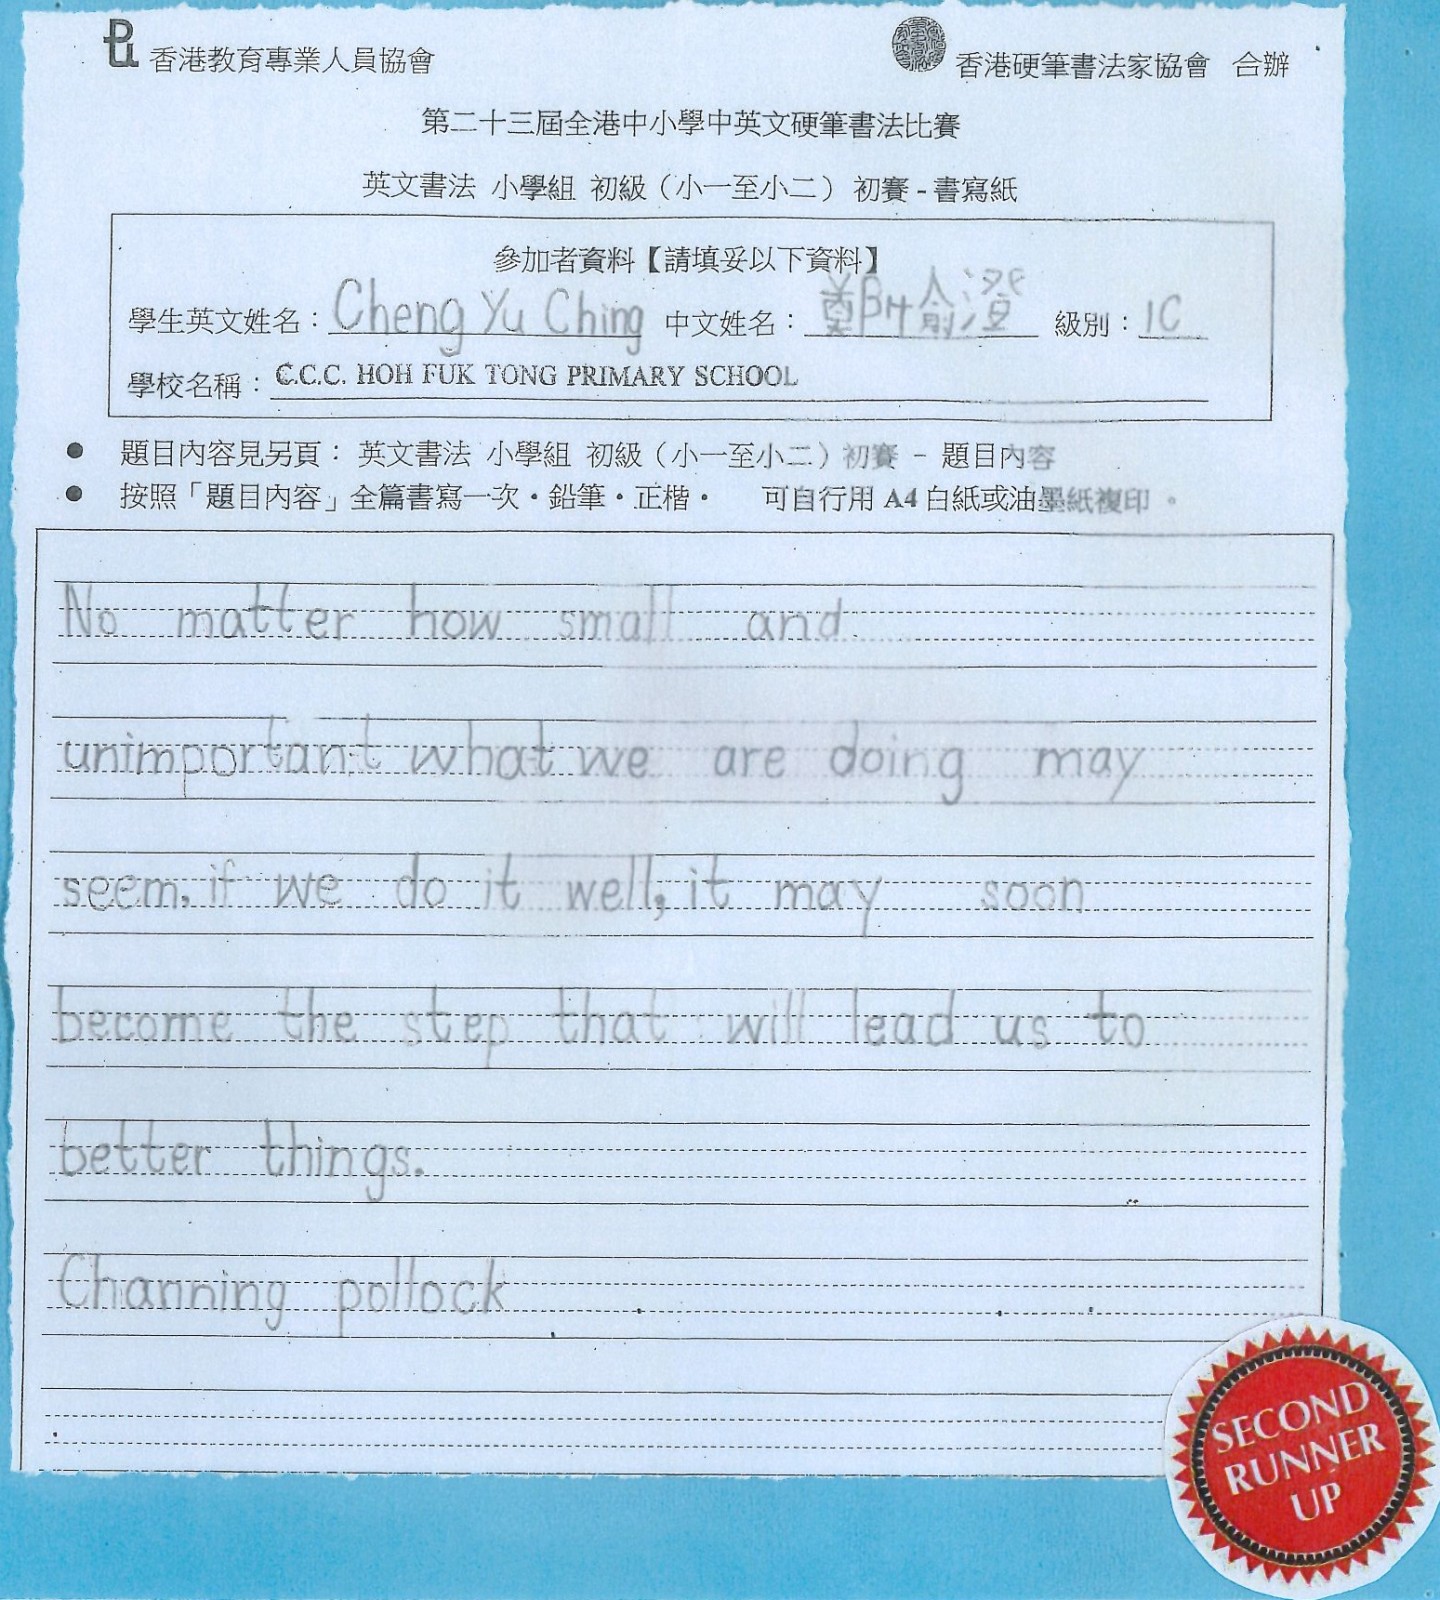 香港教育專業人員協會
香港硬筆書法家協會 合辦
第二十三屆全港中小學中英文硬筆書法比賽
英文書法 小學組 初級（小一至小二） 初賽 - 書寫紙
參加者資料【請填妥以下資料】
學生英文姓名：Cheng Yu Ching 中文姓名：鄭俞澄 級別：1C
學校名稱：C.C.C. HOH FUK TONG PRIMARY SCHOOL
● 題目內容見另頁： 英文書法 小學組 初級（小一至小二）初賽 - 題目內容
● 按照「題目內容」全篇書寫一次・鉛筆・正楷・ 可自行用 A4 白紙或油墨紙複印。
No matter how small and
unimportant what we are doing may
seem, if we do it well, it may soon
become the step that will lead us to
better things.
Channing pollock
SECOND
RUNNER
UP